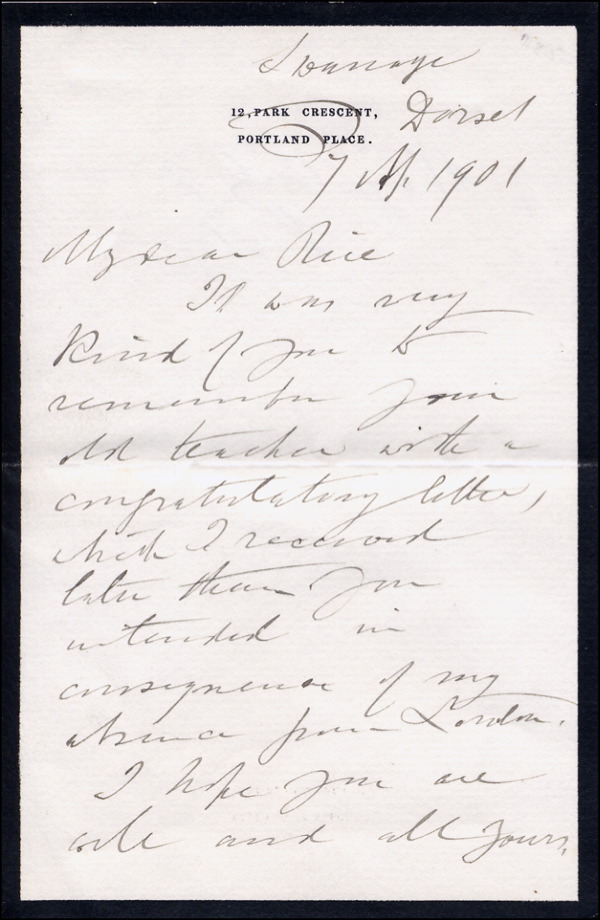 Swanage
12, PARK CRESCENT,
Dorset
PORTLAND PLACE.
7 Ap. 1901
My dear Rice
It was very
kind of you to
remember your
old teacher with a
congratulatory letter,
which I received
later than you
intended in
consequence of my
absence from London.
I hope you are
well and all yours,